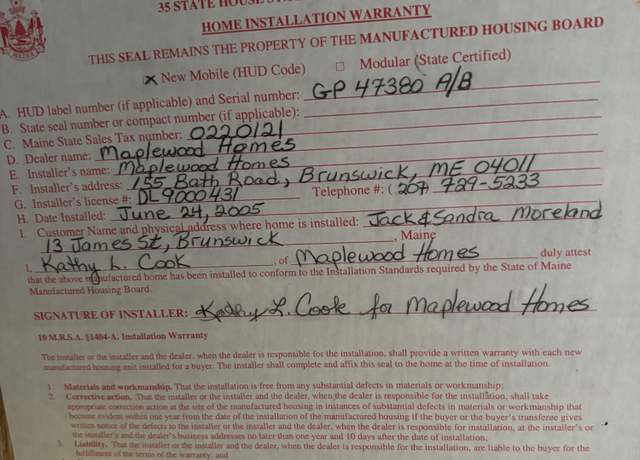 35 STATE HOUSE
HOME INSTALLATION WARRANTY
THIS SEAL REMAINS THE PROPERTY OF THE MANUFACTURED HOUSING BOARD
x New Mobile (HUD Code) □ Modular (State Certified)
A. HUD label number (if applicable) and Serial number: GP 47380 A/B
B. State seal number or compact number (if applicable):
C. Maine State Sales Tax number: 0220121
D. Dealer name: Maplewood Homes
E. Installer's name: Maplewood Homes
F. Installer's address: 155 Bath Road, Brunswick, ME 04011
G. Installer's license #: DL9000431 Telephone #: (207) 729-5233
H. Date Installed: June 24, 2005
I. Customer Name and physical address where home is installed: Jack & Sandra Moreland
13 James St, Brunswick, Maine
I, Kathy L. Cook, of Maplewood Homes duly attest
that the above manufactured home has been installed to conform to the Installation Standards required by the State of Maine
Manufactured Housing Board.
SIGNATURE OF INSTALLER: Kathy L. Cook for Maplewood Homes
10 M.R.S.A. §1404-A. Installation Warranty
The installer or the installer and the dealer, when the dealer is responsible for the installation, shall provide a written warranty with each new
manufactured housing unit installed for a buyer. The installer shall complete and affix this seal to the home at the time of installation.
1. Materials and workmanship. That the installation is free from any substantial defects in materials or workmanship;
2. Corrective action. That the installer or the installer and the dealer, when the dealer is responsible for the installation, shall take
appropriate corrective action at the site of the manufactured housing in instances of substantial defects in materials or workmanship that
become evident within one year from the date of the installation of the manufactured housing if the buyer or the buyer's transferee gives
written notice of the defects to the installer or the installer and the dealer, when the dealer is responsible for installation, at the installer's or
the installer's and the dealer's business addresses no later than one year and 10 days after the date of installation;
3. Liability. That the installer or the installer and the dealer, when the dealer is responsible for the installation, are liable to the buyer for the
fulfillment of the terms of the warranty; and